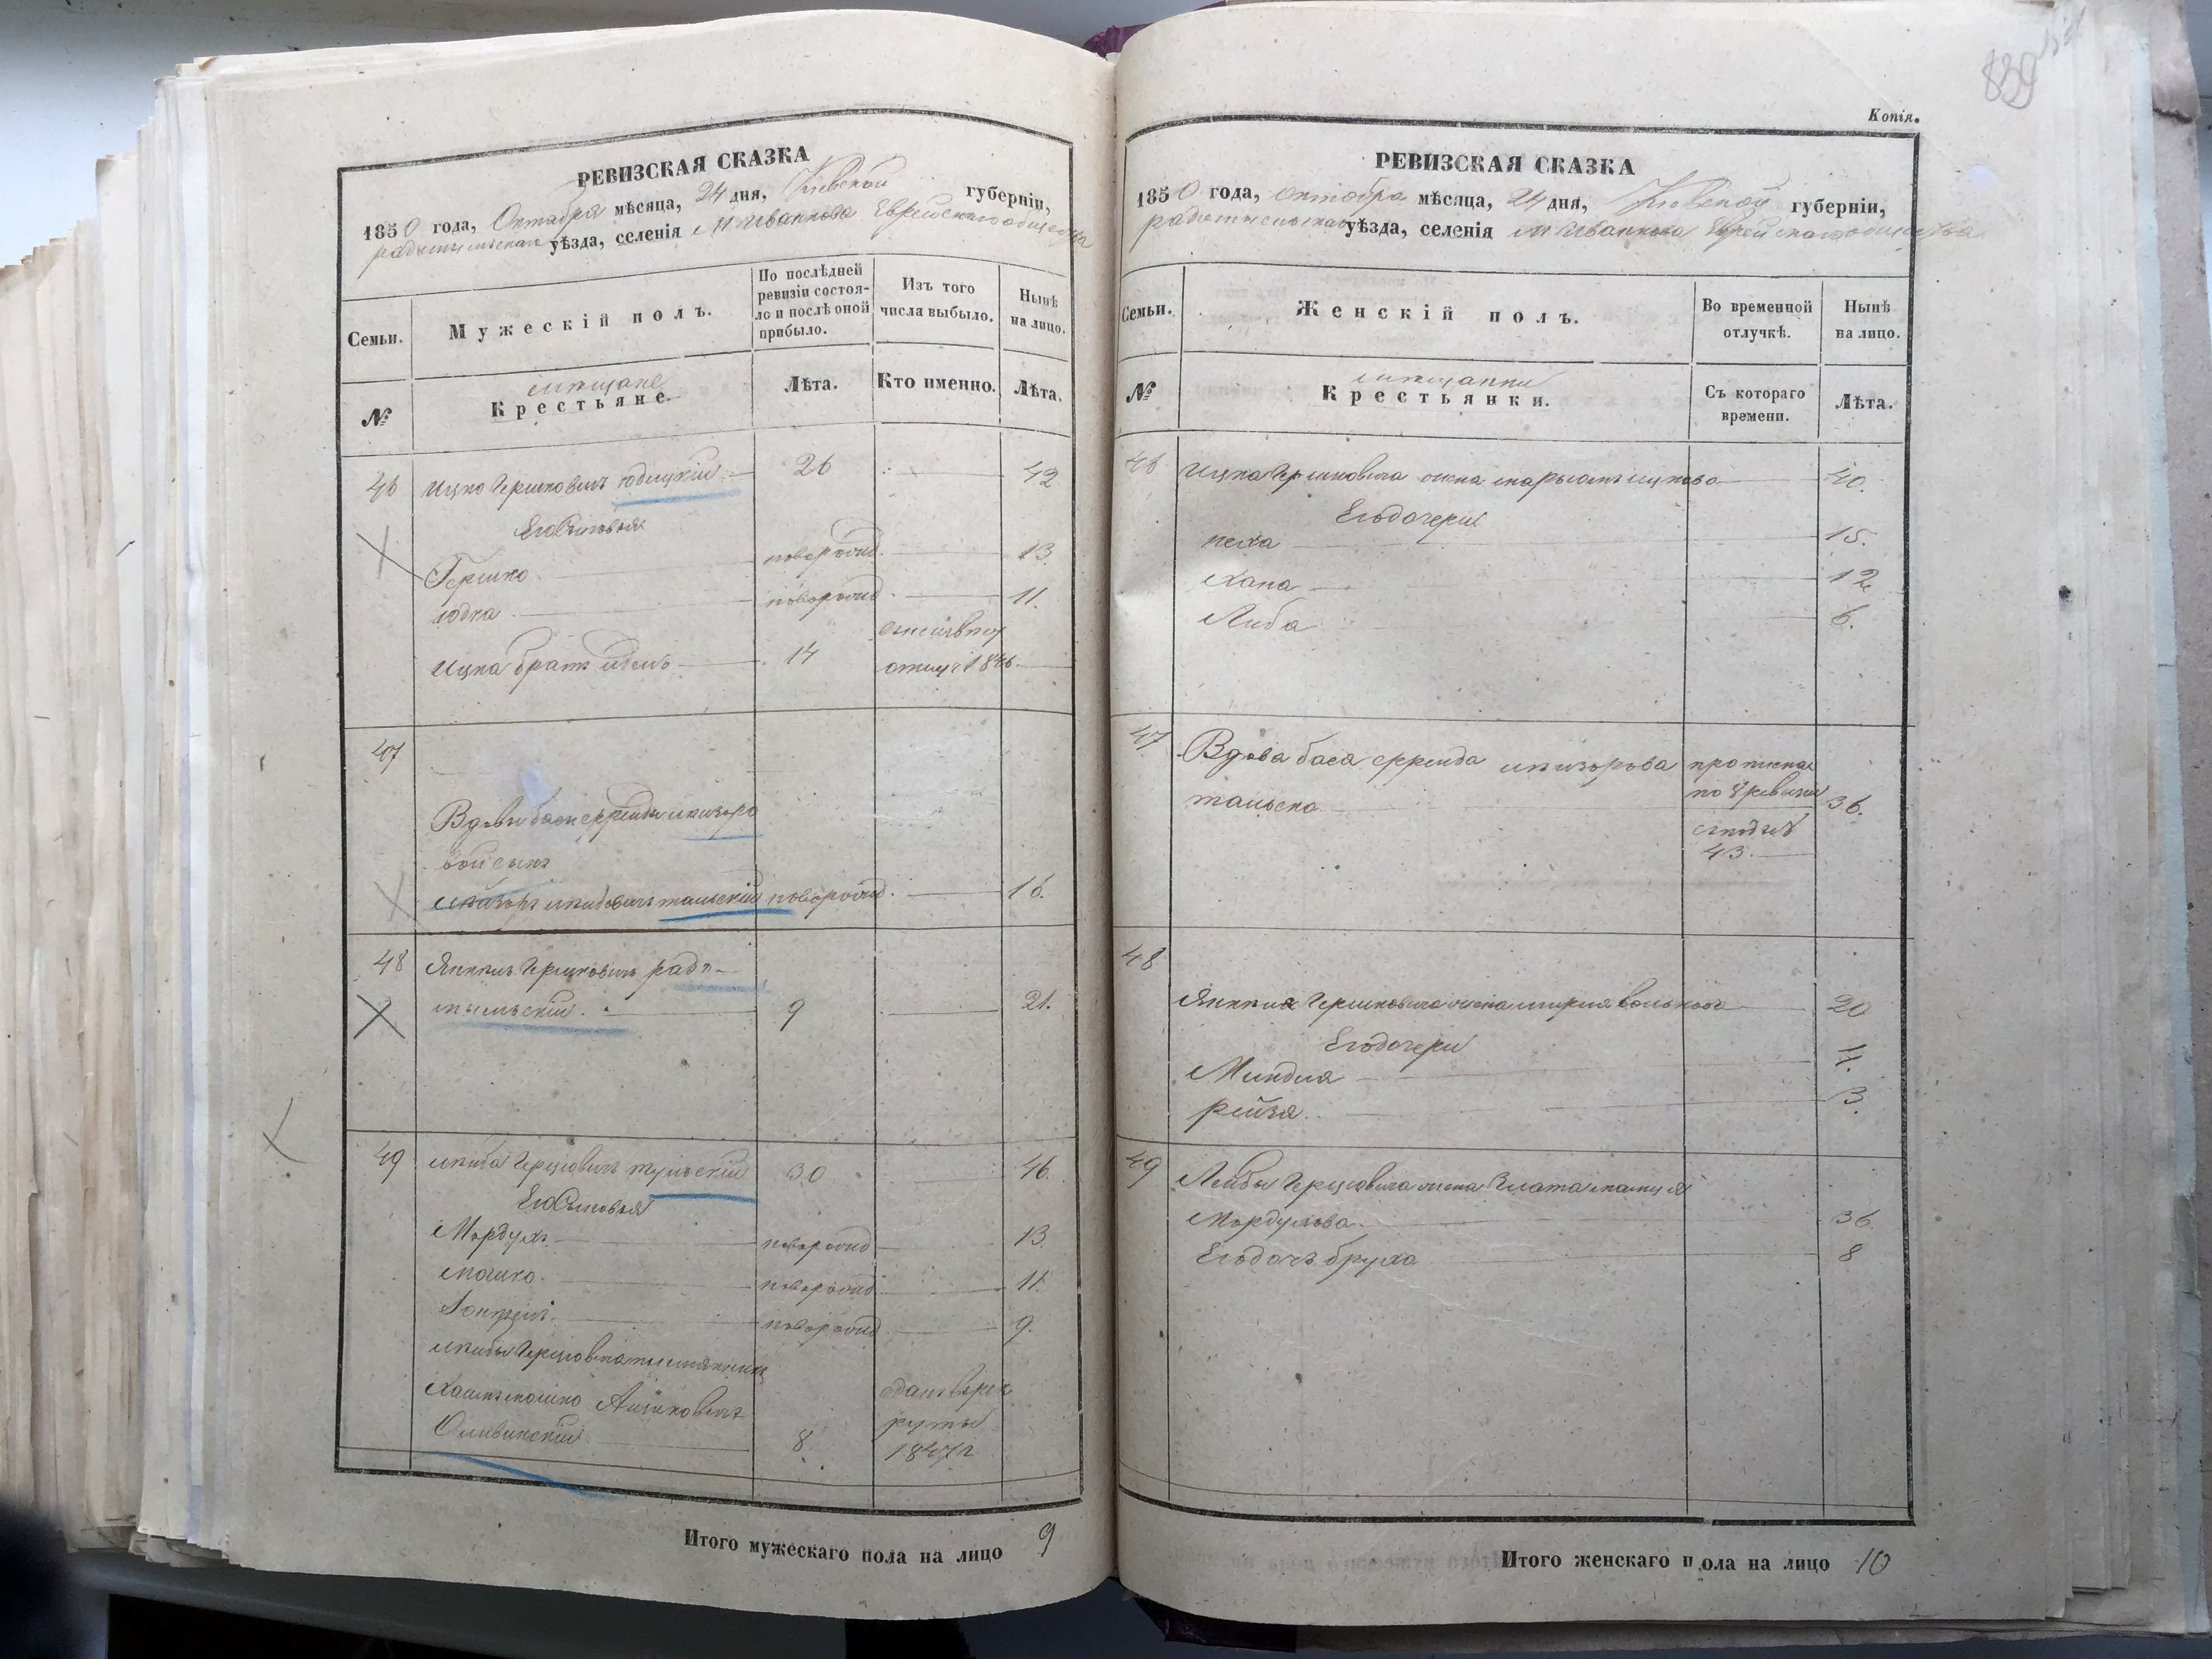 РЕВИЗСКАЯ СКАЗКА
1850 года, Октября мѣсяца, 24 дня, Кіевской губерніи,
радомысльскаго уѣзда, селенія м Иванкова Еврейскаго общества
Семьи.
Мужескій полъ.
По послѣдней ревизіи состояло и послѣ оной прибыло.
Изъ того числа выбыло.
Нынѣ на лицо.
№
мѣщане
Крестьяне.
Лѣта.
Кто именно.
Лѣта.
46 Ицко Гершковичъ юдицкій 26 42
Его Сыновья
Гершко новорожд. 13.
юдка новорожд. 11.
Ицка братъ 14 отлуч 1846
47
Вдовы баси фрейды лейзоро
вой сынъ
лейзоръ лейбовичъ тальскій новорожд. 16.
48 Янкель Гершковичъ радо-
мысльскій. 9 21.
49 лейба Герцовичъ тульскій 30 46.
Его Сыновья
Мордухъ новорожд 13.
мошко. новорожд 11.
новорожд. 9.
лейбы Герцовича племянникъ
мошко Айзиковичъ отданъ врек
Словинскій 8. руты
1847г
Итого мужескаго пола на лицо 9
839
Копія.
РЕВИЗСКАЯ СКАЗКА
1850 года, октября мѣсяца, 24 дня, Кіевской губерніи,
радомысльскаго уѣзда, селенія м Иванкова Еврейскаго общества
Семьи.
Женскій полъ.
Во временной отлучкѣ.
Нынѣ на лицо.
№
мѣщанки
Крестьянки.
Съ котораго времени.
Лѣта.
46 Ицка Гершковича жена ицкова 40.
Его дочери
песха 15.
Хана 12
Либа 6.
47 Вдова бася фрейда лейзорова прописная
тальска по 8 ревизіи 36.
43.
48
Янкеля Гершковича жена мирля волькова 20
Его дочери
Миндля 4.
рейзя. 3.
49 Лейбы Герцовича жена Злата
Мордухова. 36.
Его дочь бруха 8
Итого женскаго пола на лицо 10